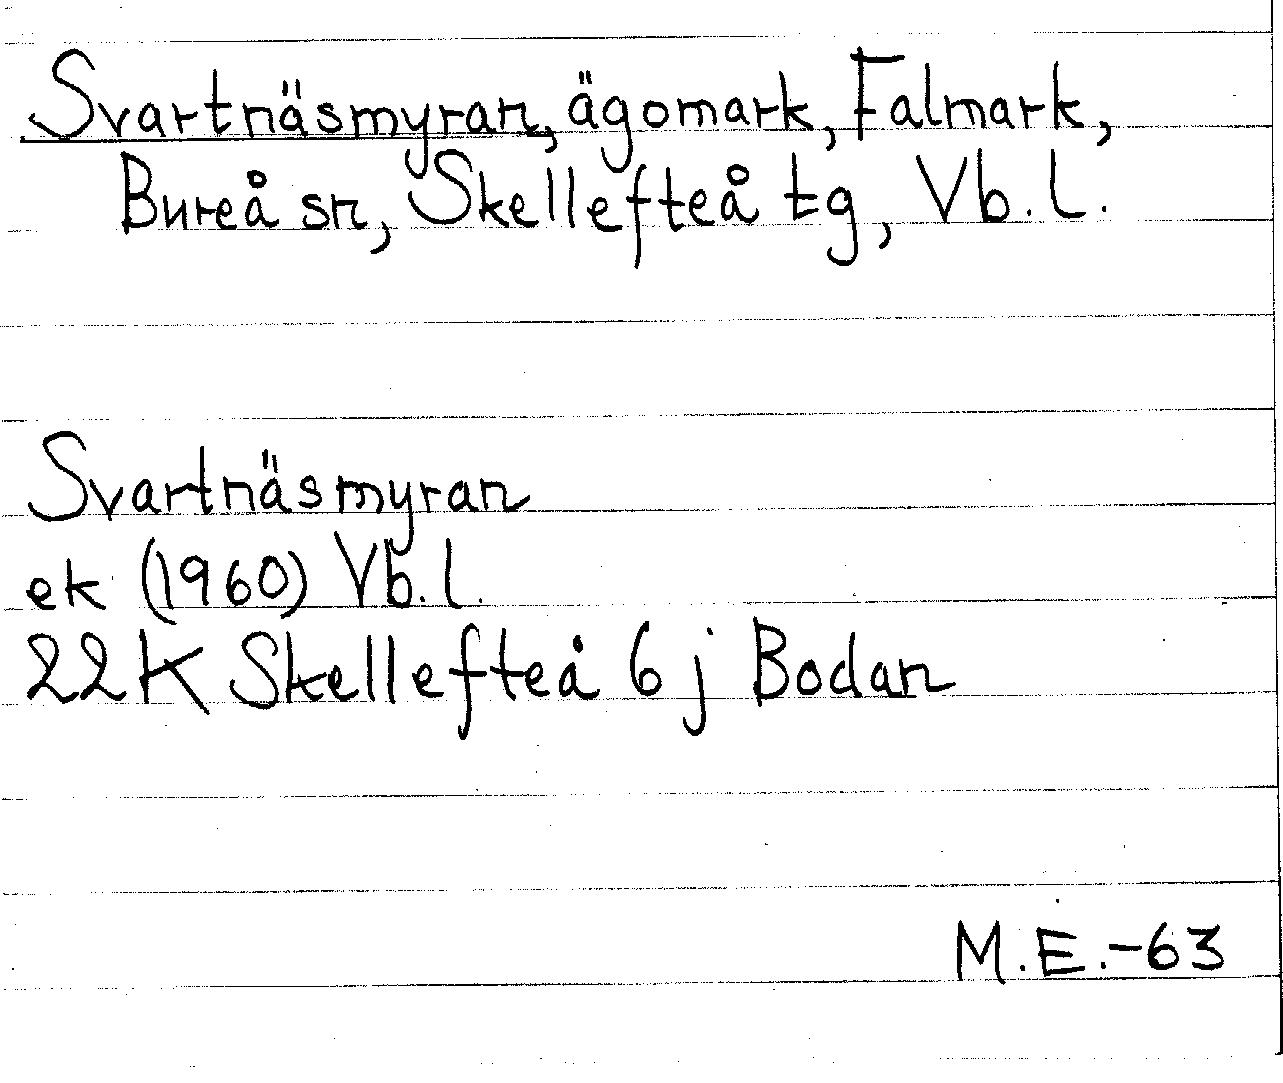 Svartnäsmyran, ägomark, Falmark,
Bureå sn, Skellefteå tg, Vb. l.
Svartnäsmyran
ek (1960) Vb. l.
22K Skellefteå 6 j Bodan
M.E.-63